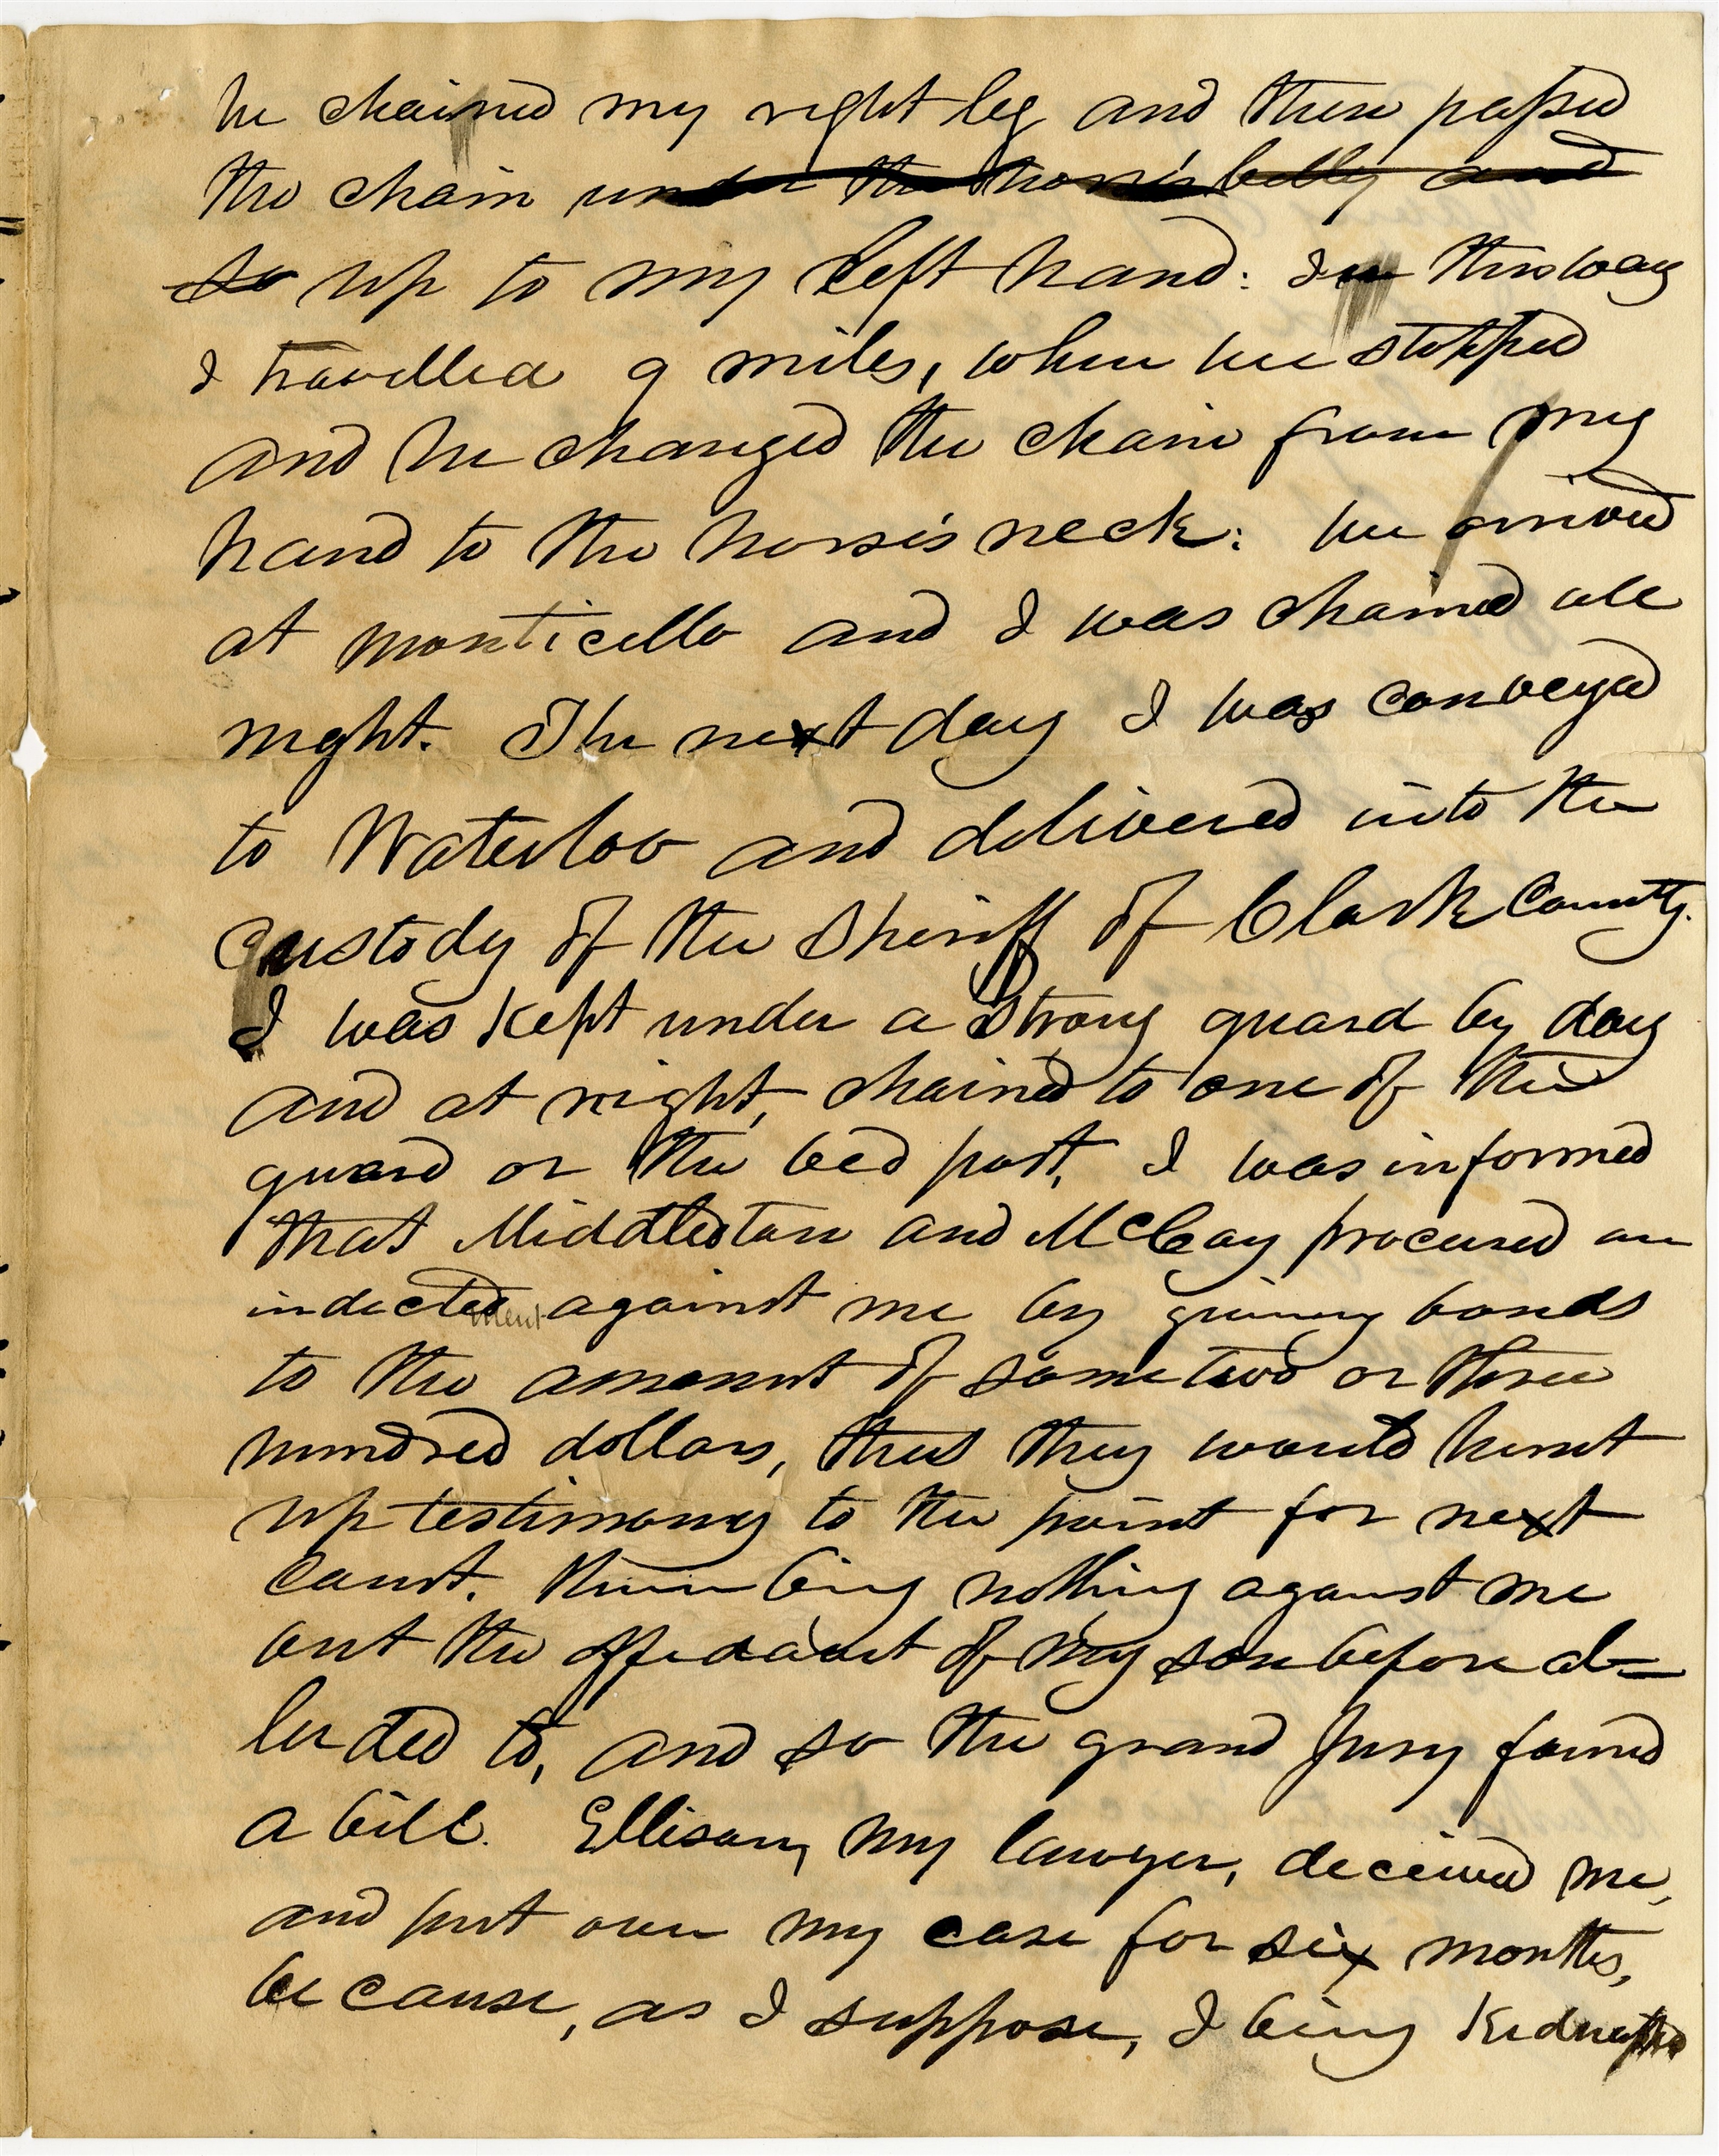 he chained my right leg and then passed
the chain under the horse's belly and
so up to my left hand: In this way
I travelled 9 miles, when we stopped
and he changed the chain from my
hand to the horse's neck: we arrived
at Monticello and I was chained all
night. The next day I was conveyed
to Waterloo and delivered into the
custody of the Sheriff of Clark County.
I was kept under a strong guard by day
and at night, chained to one of the
guard or the bed post, I was informed
that Middleton and McCoy procured an
indictment against me by giving bonds
to the amount of some two or three
hundred dollars, that they would hunt
up testimony to the point for next
court. there being nothing against me
but the affidavit of my son before al=
luded to, and so the grand jury found
a bill. Ellison, my lawyer, deceived me,
and put over my case for six months,
because, as I suppose, I being kidnapped